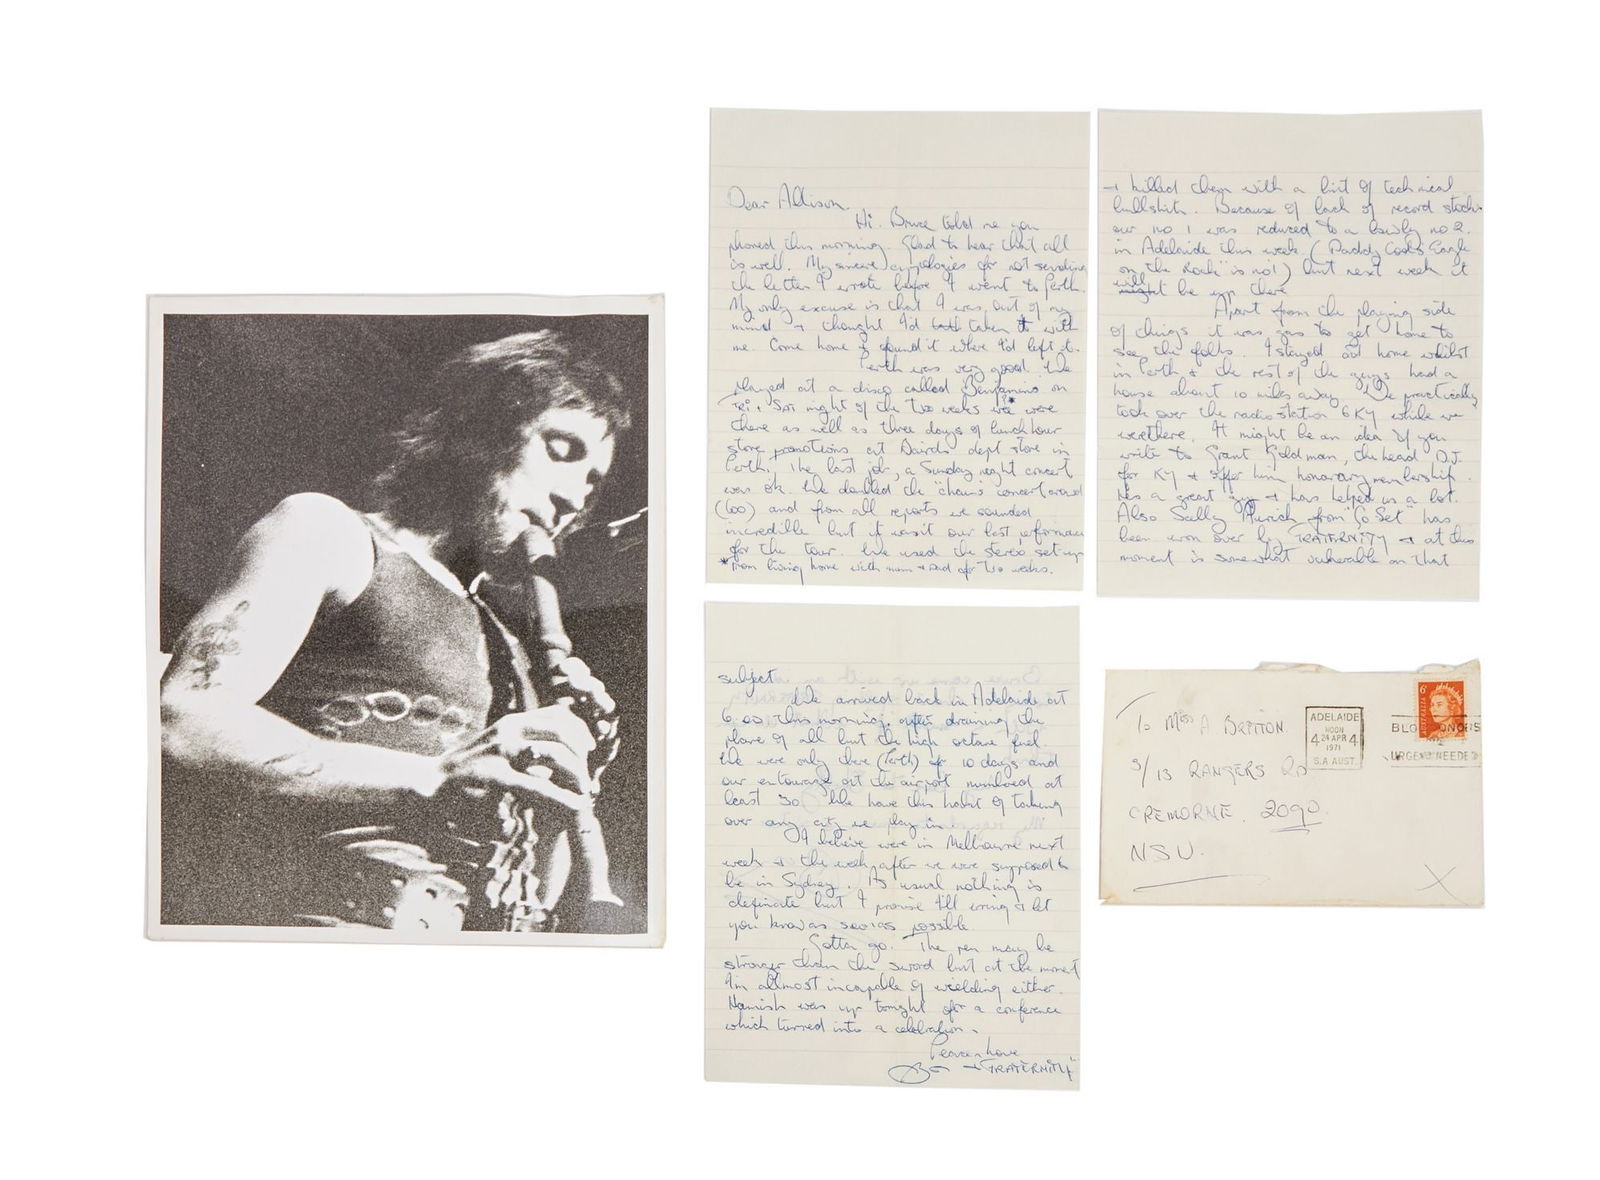 Dear Allison,
Hi. Bruce told me you
phoned this morning. Glad to hear that all
is well. My sincere apologies for not sending
the letter I wrote before I went to Perth.
My only excuse is that I was out of my
mind + thought I'd taken it with
me. Come home & found it where I'd left it.
Perth was very good. We
played at a disco called Benjamins on
Fri + Sat night of the two weeks we were
there as well as three days of lunch hour
store promotions at Bairds dept store in
Perth. The last job, a Sunday night concert
was ok. We doubled the "chain" concert crowd
(600) and from all reports we sounded
incredible but it wasn't our last performance
for the tour. We used the stereo set-up
*from living home with mum + dad for two weeks.
+ killed them with a bit of technical
bullshit. Because of lack of record stock
our no 1 was reduced to a lowly no 2.
in Adelaide this week. (Daddy Cool's Eagle
on the Rock" is no1) but next week it
will be up there
Apart from the playing side
of things it was gas to get home to
see the folks. I stayed at home whilst
in Perth + the rest of the guys had a
house about 10 miles away. We practically
took over the radio station 6KY while we
werethere. It might be an idea if you
write to Grant Goldman, the head D.J.
for KY + offer him honorary membership.
He's a great guy + has helped us a lot.
Also Sally from "Go Set" has
been won over by FRATERNITY + at this
moment is somewhat vulnerable on that
subject
We arrived back in Adelaide at
6.00 this morning. after draining the
plane of all but the high octane fuel.
We were only there (Perth) for 10 days and
our entourage at the airport numbered at
least 30. We have this habit of taking
over any city we play in.
I believe were in Melbourne next
week + the week after we were supposed to
be in Sydney. As usual nothing is
definate but I promise I'll wring + let
you know as soon as possible.
Gotta go. The pen may be
stronger than the sword but at the moment
I'm allmost incapable of wielding either.
Hamish was up tonight for a conference
which turned into a celebration.
Peace + Love
Bon + "FRATERNITY"
To Miss A BRITTON.
3/13 RANGERS RD
CREMORNE. 2090.
NSW.
ADELAIDE
NOON
4 24 APR 4
1971
S.A AUST.
AUSTRALIA
6c
BLOOD DONORS
URGENTLY NEEDED